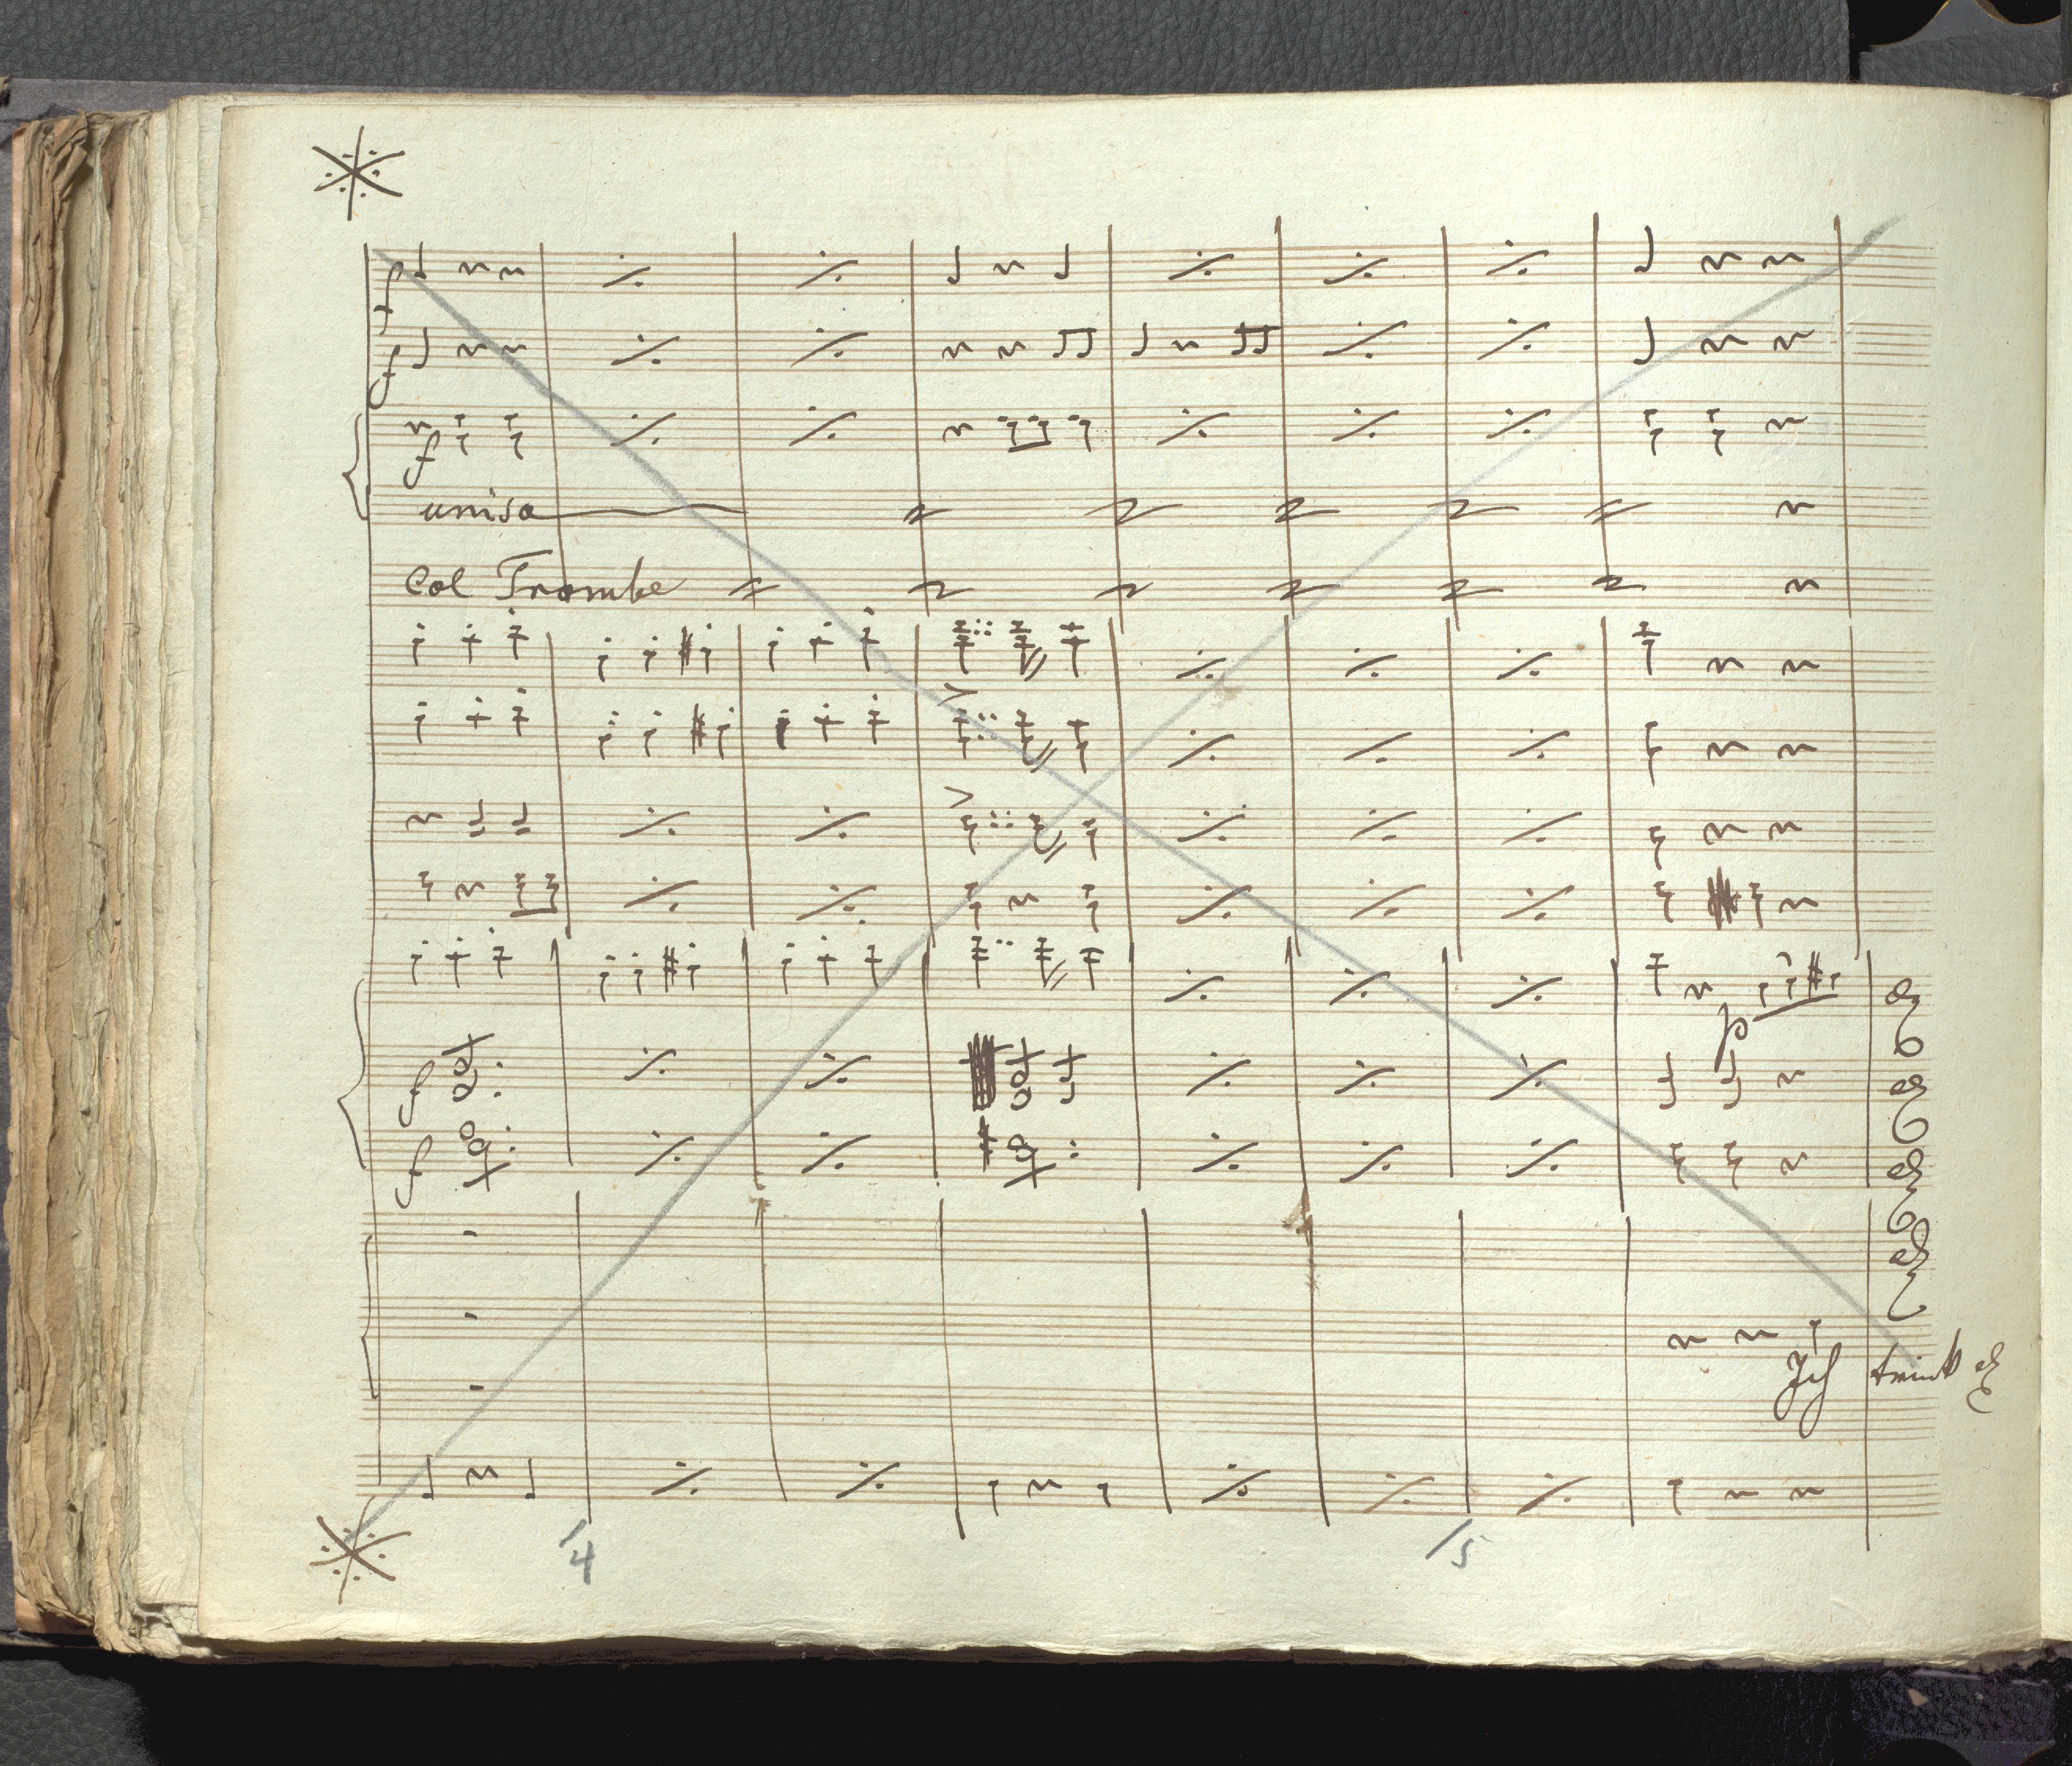 f
f
f
unis.
Col Trombe
p
f
f
Ich trink
14
15